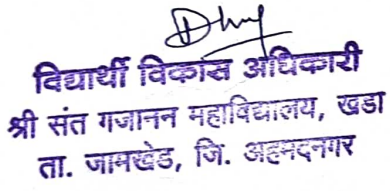 विद्यार्थी विकास अधिकारी
श्री संत गजानन महाविद्यालय, खर्डा
ता. जामखेड, जि. अहमदनगर